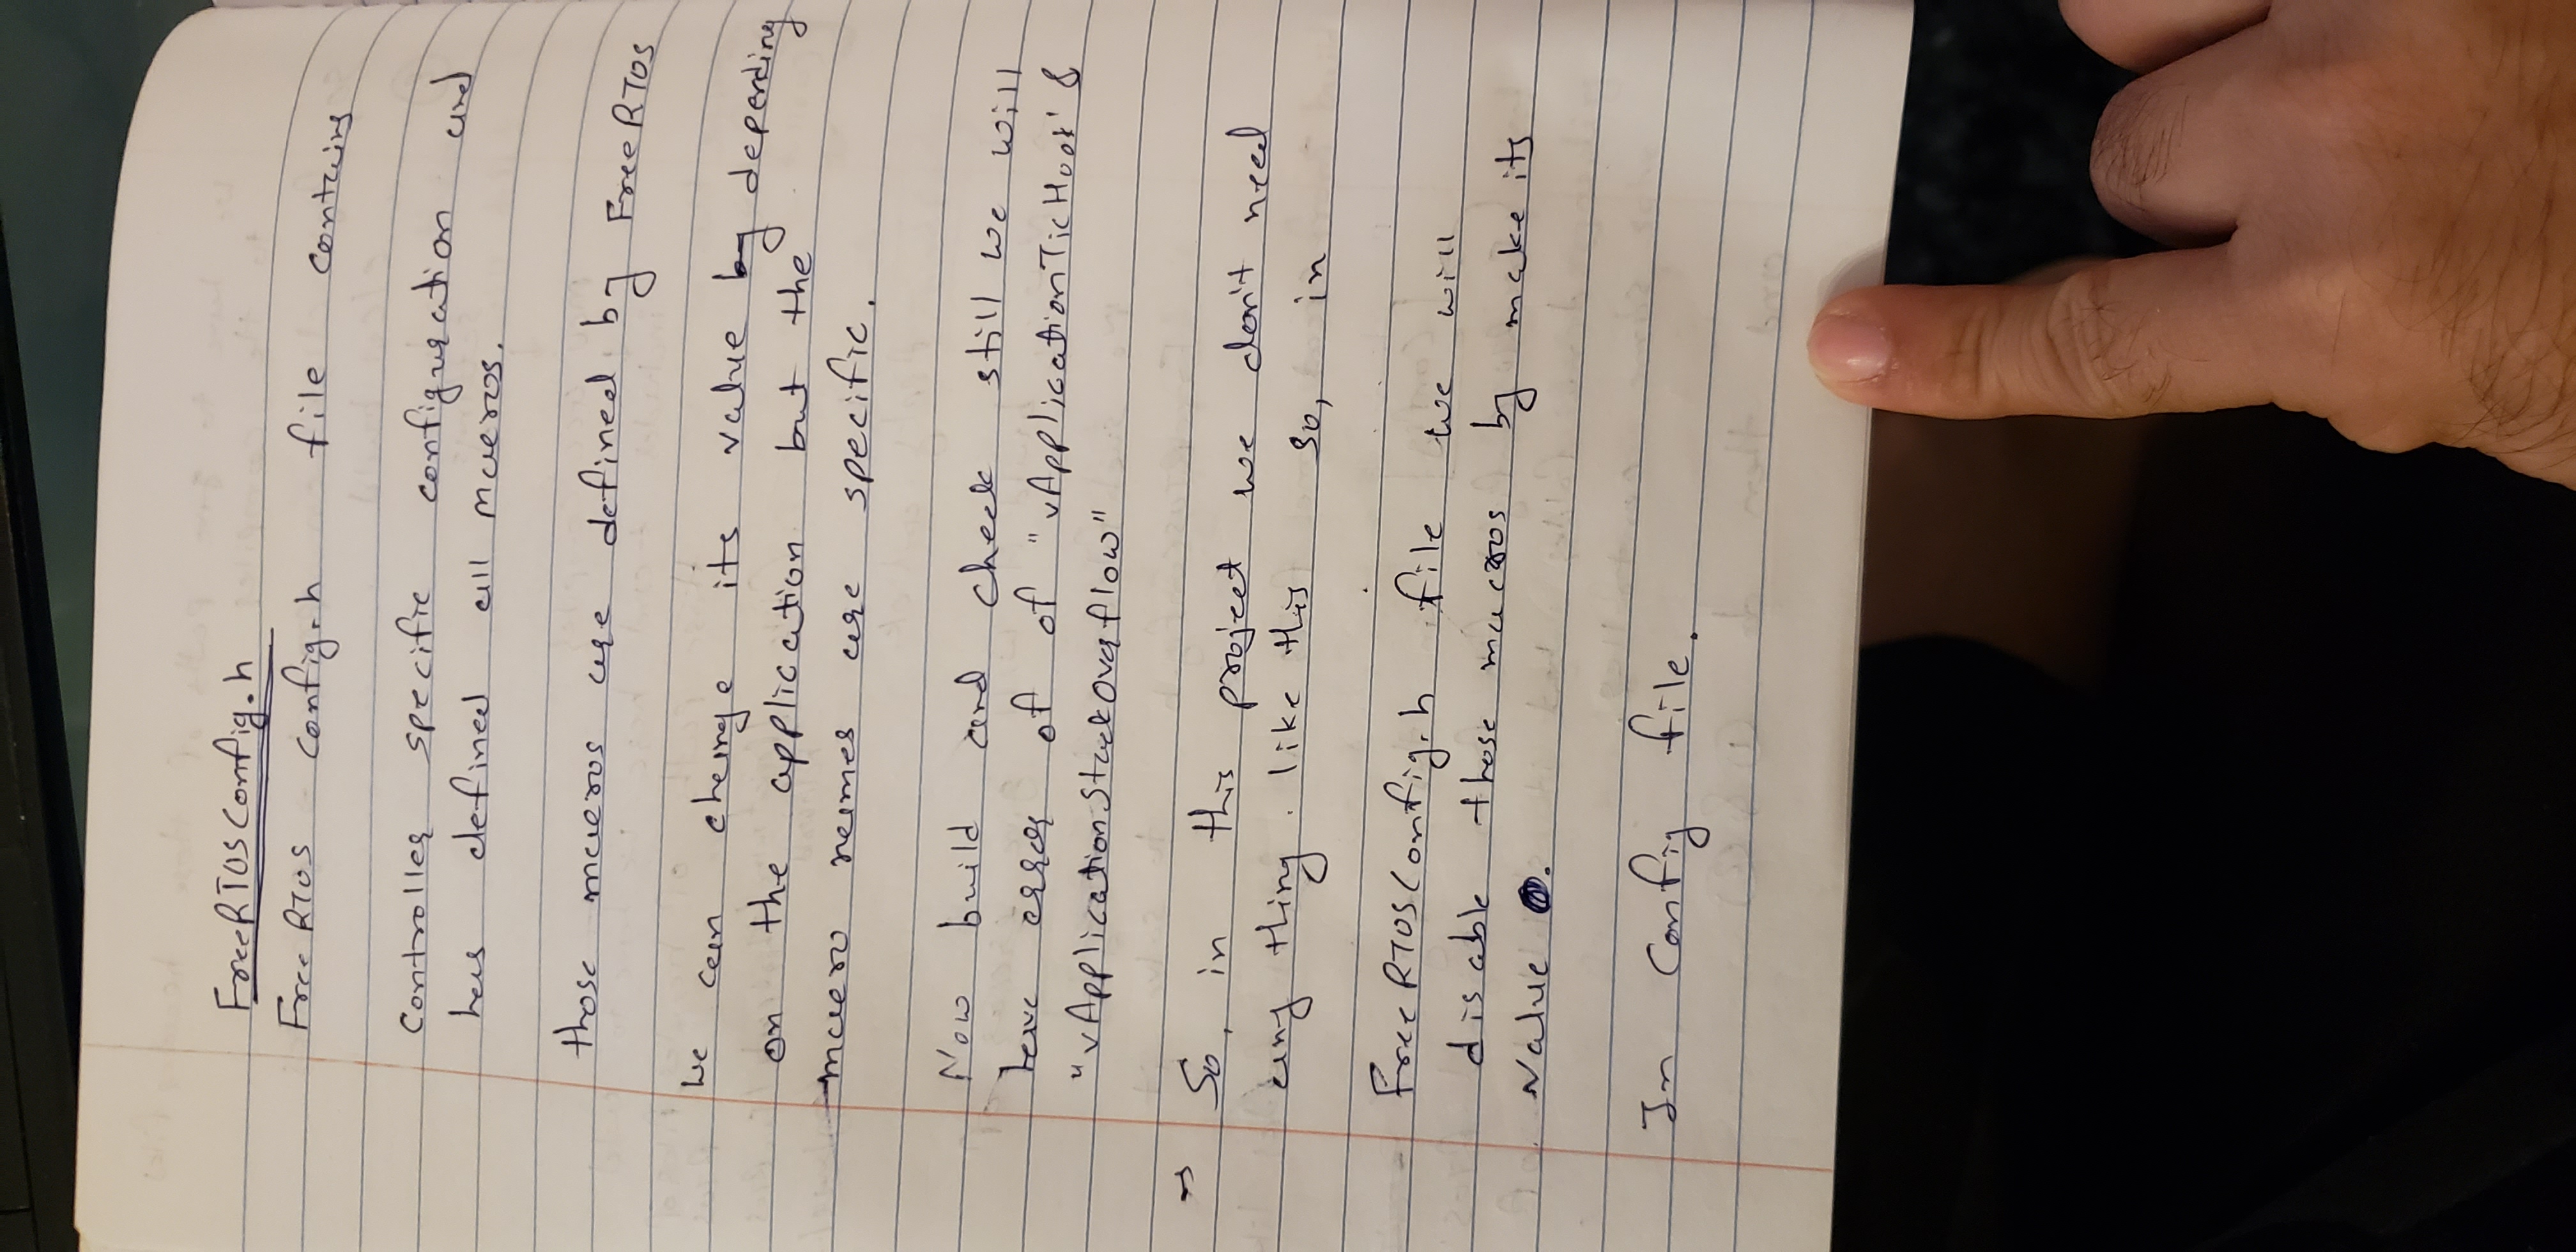 FreeRTOSConfig.h
FreeRTOS config.h file contains
Controller specific configuration and
has defined all macros.
those macros are defined by FreeRTOS
we can change its value by depending
on the application but the
macro names are specific.
Now build and check still we will
have error of of "vApplicationTicHook' &
"vApplicationStackOverflow"
→ So, in this project we don't need
any thing. like this so, in
FreeRTOSConfig.h file we will
disable those macros by make its
value 0.
In Config file.